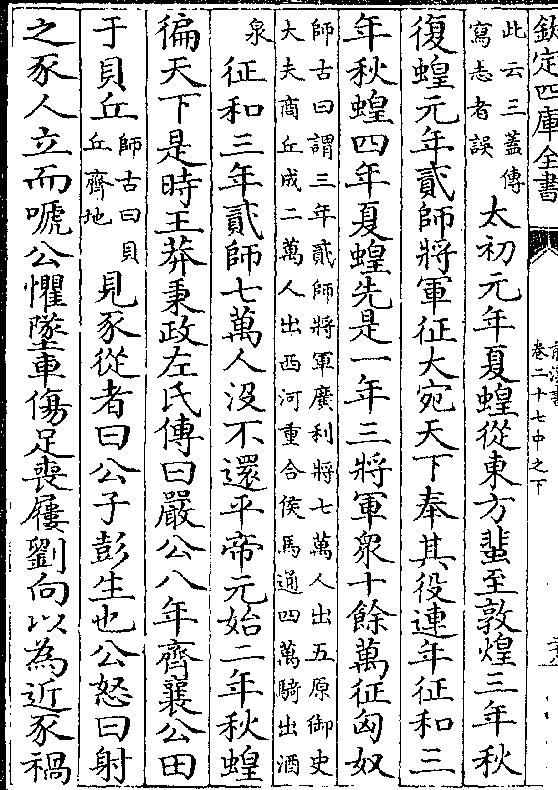 欽定四庫全書
前漢書
卷二十七中之下
此云三蓋傳
寫志者誤
太初元年夏蝗從東方蜚至敦煌三年秋
復蝗元年貳師將軍征大宛天下奉其役連年征和三
年秋蝗四年夏蝗先是一年三將軍衆十餘萬征匈奴
師古曰謂三年貳師將軍廣利將七萬人出五原御史
大夫商丘成二萬人出西河重合侯馬通四萬騎出酒
泉
征和三年貳師七萬人沒不還平帝元始二年秋蝗
徧天下是時王莽秉政左氏傳曰嚴公八年齊襄公田
于貝丘
師古曰貝
丘齊地
見豕從者曰公子彭生也公怒曰射
之豕人立而嗁公懼墜車傷足喪屨劉向以為近豕禍